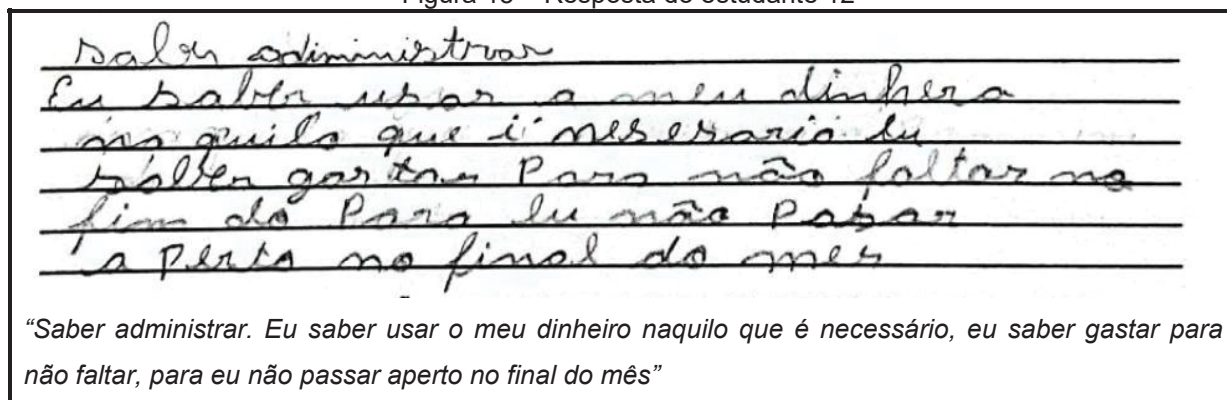 saber adiministrar
Eu saber usar o meu dinhero
na quilo que é nesesario eu
saber gastar Para não faltar no
fim do Para eu não Pasar
a Perto no final do mes
“Saber administrar. Eu saber usar o meu dinheiro naquilo que é necessário, eu saber gastar para
não faltar, para eu não passar aperto no final do mês”